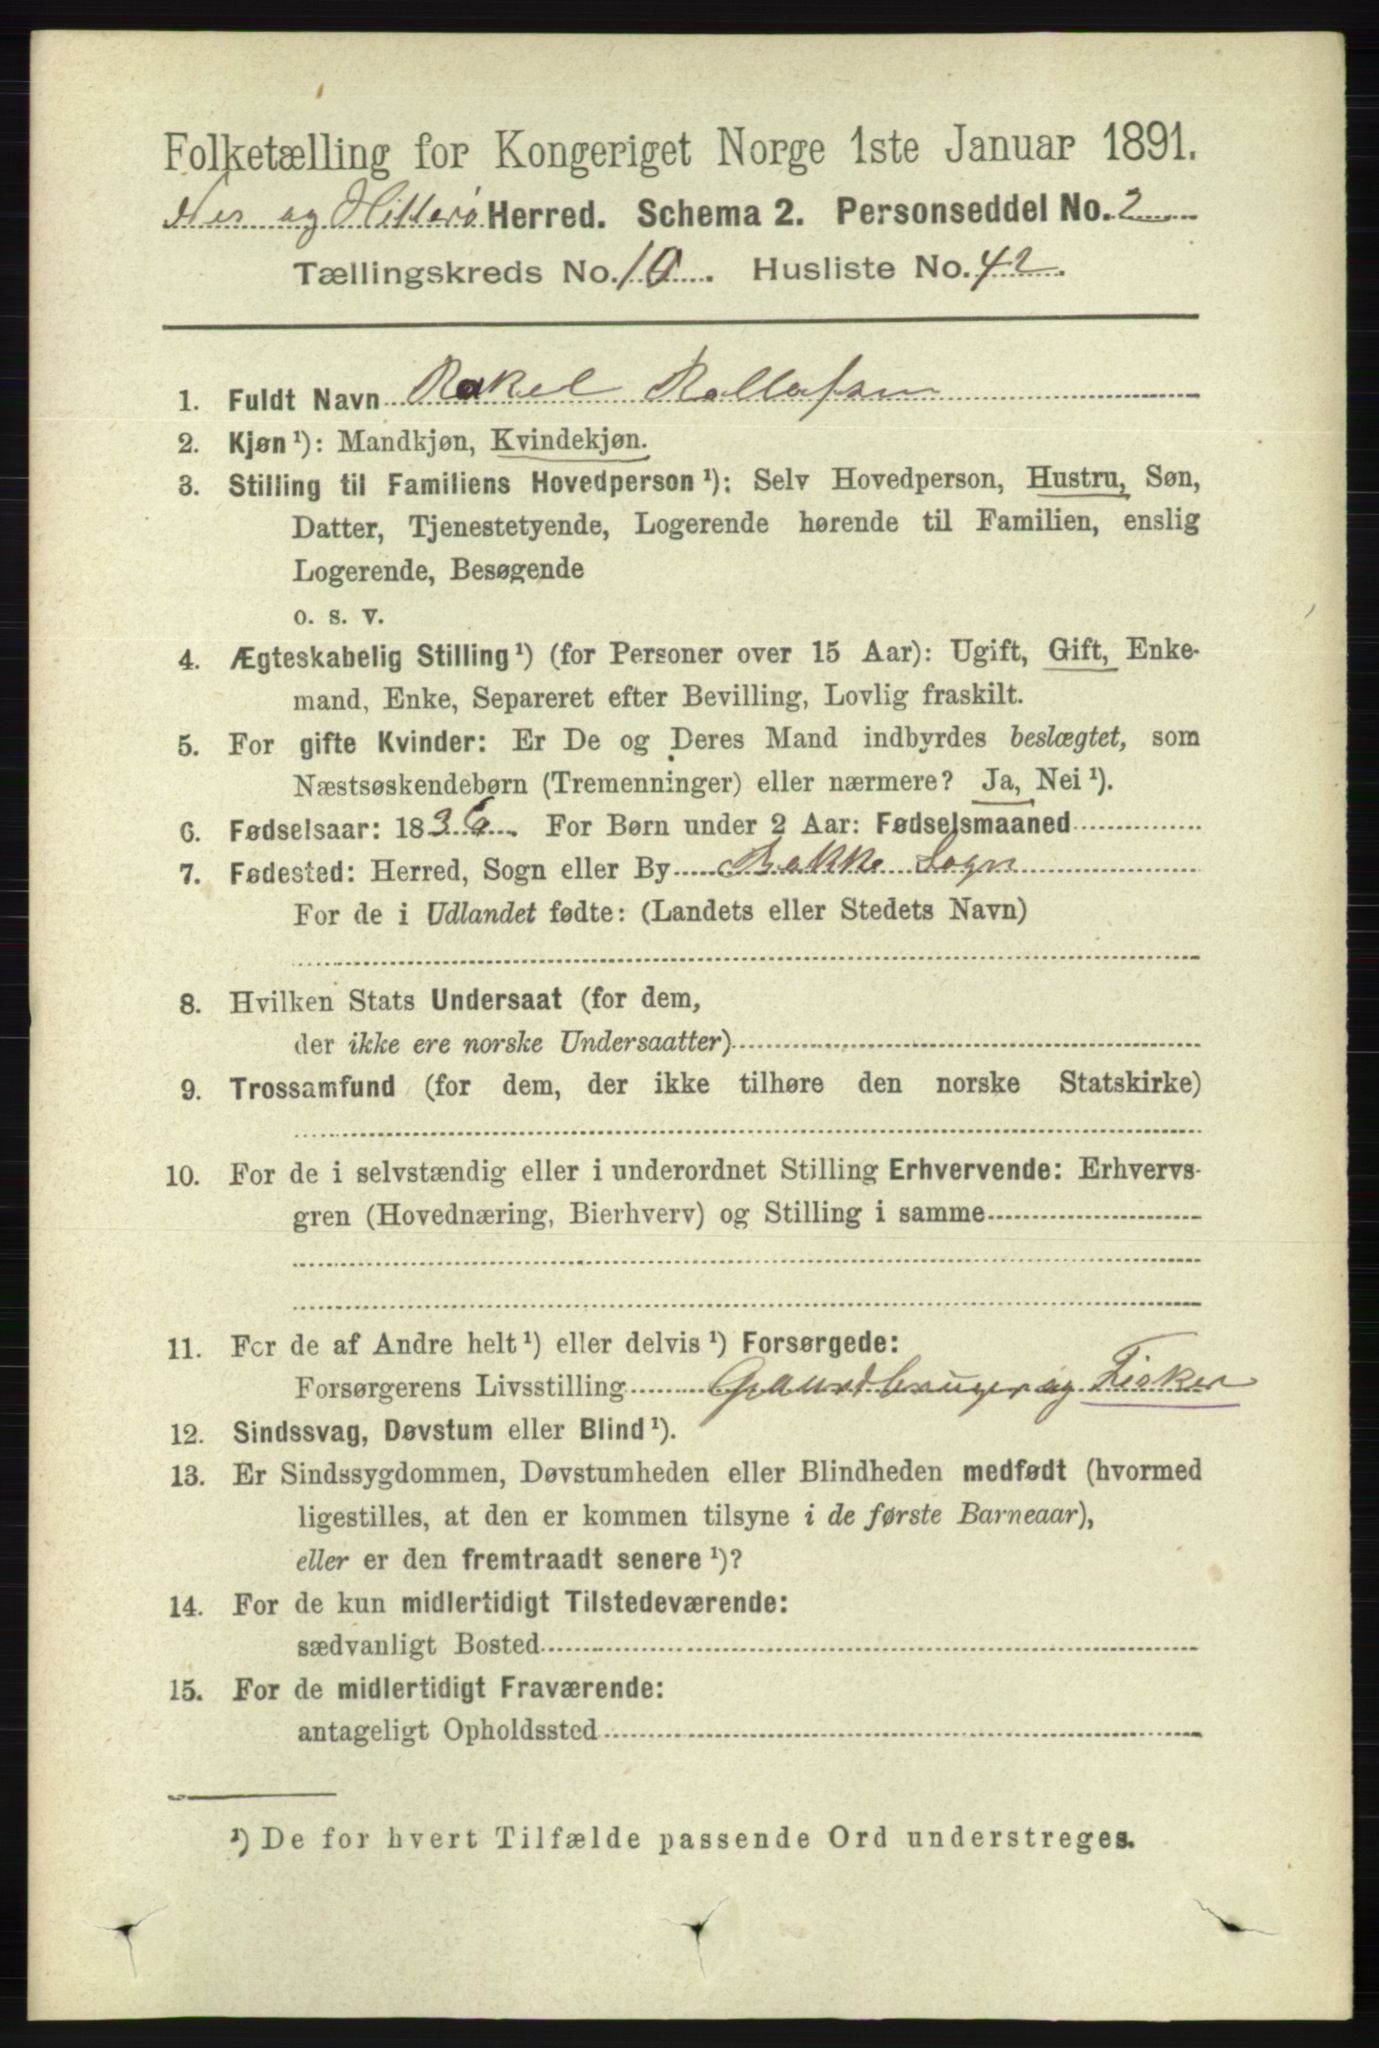 Folketælling for Kongeriget Norge 1ste Januar 1891.
Nes og Hitterø Herred. Schema 2. Personseddel No. 2
Tællingskreds No. 10. Husliste No. 42.
1. Fuldt Navn Rakel Rollafsen
2. Kjøn ¹): Mandkjøn, Kvindekjøn.
3. Stilling til Familiens Hovedperson ¹): Selv Hovedperson, Hustru, Søn,
Datter, Tjenestetyende, Logerende hørende til Familien, enslig
Logerende, Besøgende
o. s. v.
4. Ægteskabelig Stilling ¹) (for Personer over 15 Aar): Ugift, Gift, Enke-
mand, Enke, Separeret efter Bevilling, Lovlig fraskilt.
5. For gifte Kvinder: Er De og Deres Mand indbyrdes beslægtet, som
Næstsøskendebørn (Tremenninger) eller nærmere? Ja, Nei ¹).
6. Fødselsaar: 1836. For Børn under 2 Aar: Fødselsmaaned
7. Fødested: Herred, Sogn eller By Bakke Sogn
For de i Udlandet fødte: (Landets eller Stedets Navn)
8. Hvilken Stats Undersaat (for dem,
der ikke ere norske Undersaatter)
9. Trossamfund (for dem, der ikke tilhøre den norske Statskirke)
10. For de i selvstændig eller i underordnet Stilling Erhvervende: Erhvervs-
gren (Hovednæring, Bierhverv) og Stilling i samme
11. For de af Andre helt ¹) eller delvis ¹) Forsørgede:
Forsørgerens Livsstilling Gaardbruger og Fisker
12. Sindssvag, Døvstum eller Blind ¹).
13. Er Sindssygdommen, Døvstumheden eller Blindheden medfødt (hvormed
ligestilles, at den er kommen tilsyne i de første Barneaar),
eller er den fremtraadt senere ¹)?
14. For de kun midlertidigt Tilstedeværende:
sædvanligt Bosted
15. For de midlertidigt Fraværende:
antageligt Opholdssted
¹) De for hvert Tilfælde passende Ord understreges.